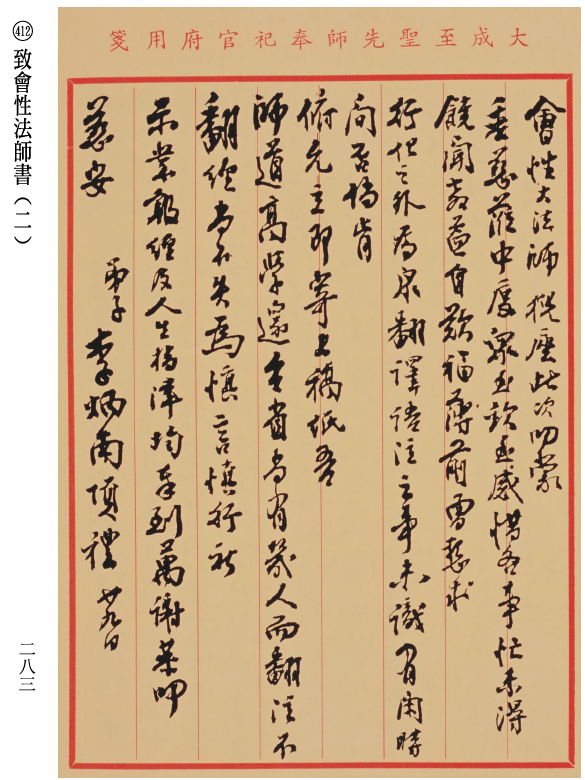 大成至聖先師奉祀官府用箋
412 致會性法師書（二）
會性大法師猊座此次叩蒙
垂慈蒞中度眾至欽至感惜各事忙未得
饒聞教益自歎福薄前曾懇求
行化之外為眾翻譯語注之事未識有閑時
間否倘肯
俯允立即寄上稿紙吾
師道高學邃台省尚有幾人而翻注不
翻經尚不失為慎言慎行祈
示業報經及人生指津均奉到萬謝叩
慈安
弟子李炳南頂禮 廿九日
二八三